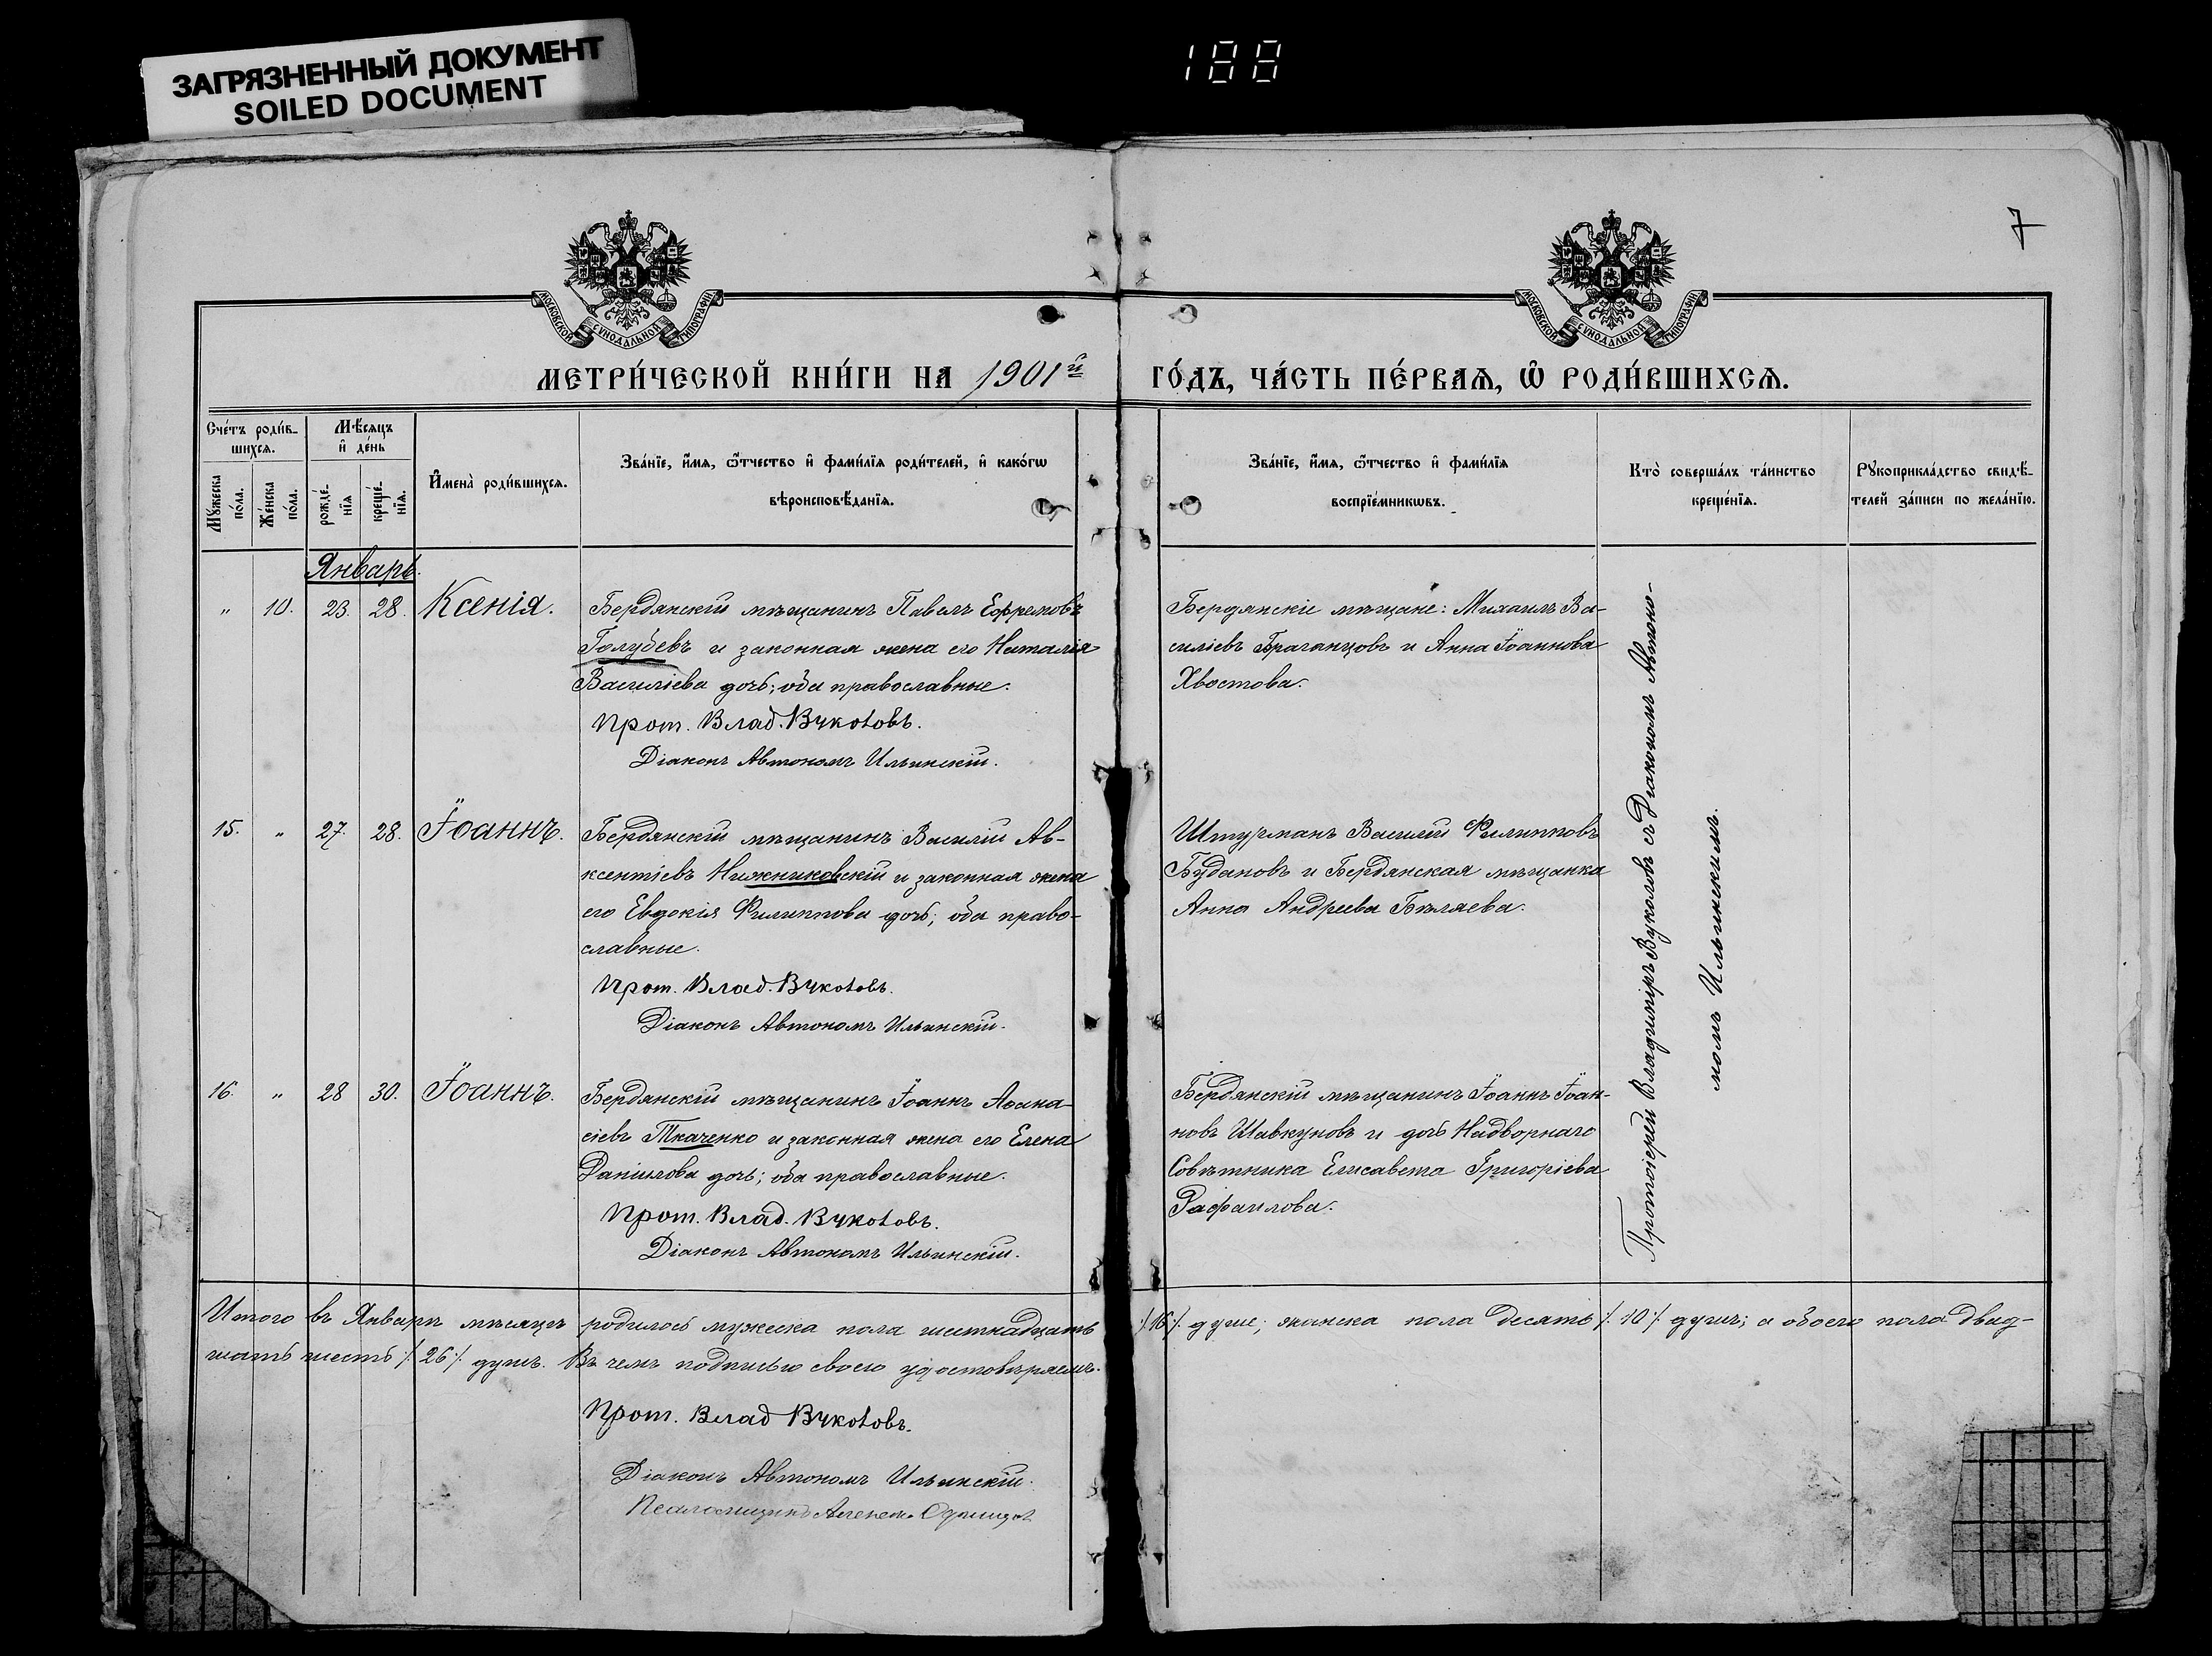 ЗАГРЯЗНЕННЫЙ ДОКУМЕНТ
SOILED DOCUMENT
188
7
МОСКОВСКОЙ СѴНОДАЛЬНОЙ ТИПОГРАФІИ
МОСКОВСКОЙ СѴНОДАЛЬНОЙ ТИПОГРАФІИ
МЕТРИ́ЧЕСКОЙ КНИ́ГИ НА 1901й ГО́ДЪ, ЧА́СТЬ ПЕ́РВАѦ, Ѡ҆ РОДИ́ВШИХСѦ.
Сче́тъ роди́в-
шихсѧ.
Мѣ́сѧцъ
и҆ де́нь
Мꙋ́жеска
по́ла.
Же́нска
по́ла.
рожде́-
нїѧ
креще́-
нїѧ.
И҆мена̀ роди́вшихсѧ.
Зва́нїе, и҆́мѧ, ѻ҆́тчество и҆ фами́лїѧ роди́телей, и҆ како́гѡ
вѣроисповѣ́данїѧ.
Зва́нїе, и҆́мѧ, ѻ҆́тчество и҆ фами́лїѧ
воспрїе́мникѡвъ.
Кто̀ соверша́лъ та́инство
креще́нїѧ.
Рꙋкоприкла́дство свидѣ́-
телей за́писи по жела́нїю.
Январь.
" 10. 23. 28. Ксенія.
Бердянскій мѣщанинъ Павелъ Ефремовъ
Голубевъ и законная жена его Наталія
Василіева дочь; оба православные.
Прот. Влад. Вуколовъ.
Діаконъ Автономъ Ильинскій.
Бердянскіе мѣщане: Михаилъ Ва-
силіевъ Браганцовъ и Анна Іоаннова
Хвостова.
15. " 27. 28. Іоаннъ.
Бердянскій мѣщанинъ Василій Ав-
ксентіевъ Нижниковскій и законная жена
его Евдокія Филиппова дочь; оба право-
славные.
Прот. Влад. Вуколовъ.
Діаконъ Автономъ Ильинскій.
Штурманъ Василій Филипповъ
Будановъ и Бердянская мѣщанка
Анна Андреева Бѣляева.
16. " 28 30. Іоаннъ.
Бердянскій мѣщанинъ Іоаннъ Аѳана-
сіевъ Ткаченко и законная жена его Елена
Даніилова дочь; оба православные.
Прот. Влад. Вуколовъ.
Діаконъ Автономъ Ильинскій.
Бердянскій мѣщанинъ Іоаннъ Іоан-
новъ Шавкуновъ и дочь Надворнаго
Совѣтника Елисавета Григоріева
Рафаилова.
Протоіерей Владиміръ Вуколовъ съ Діакономъ Автоно-
момъ Ильинскимъ.
Итого въ Январѣ мѣсяцѣ родилось мужеска пола шестнадцать /.16./ душъ; женска пола десять /.10./ душъ; а обоего пола двад-
цать шесть /.26./ душъ. Въ чемъ подписью своею удостовѣряемъ.
Прот. Влад Вуколовъ.
Діаконъ Автономъ Ильинскій.
Псаломщикъ